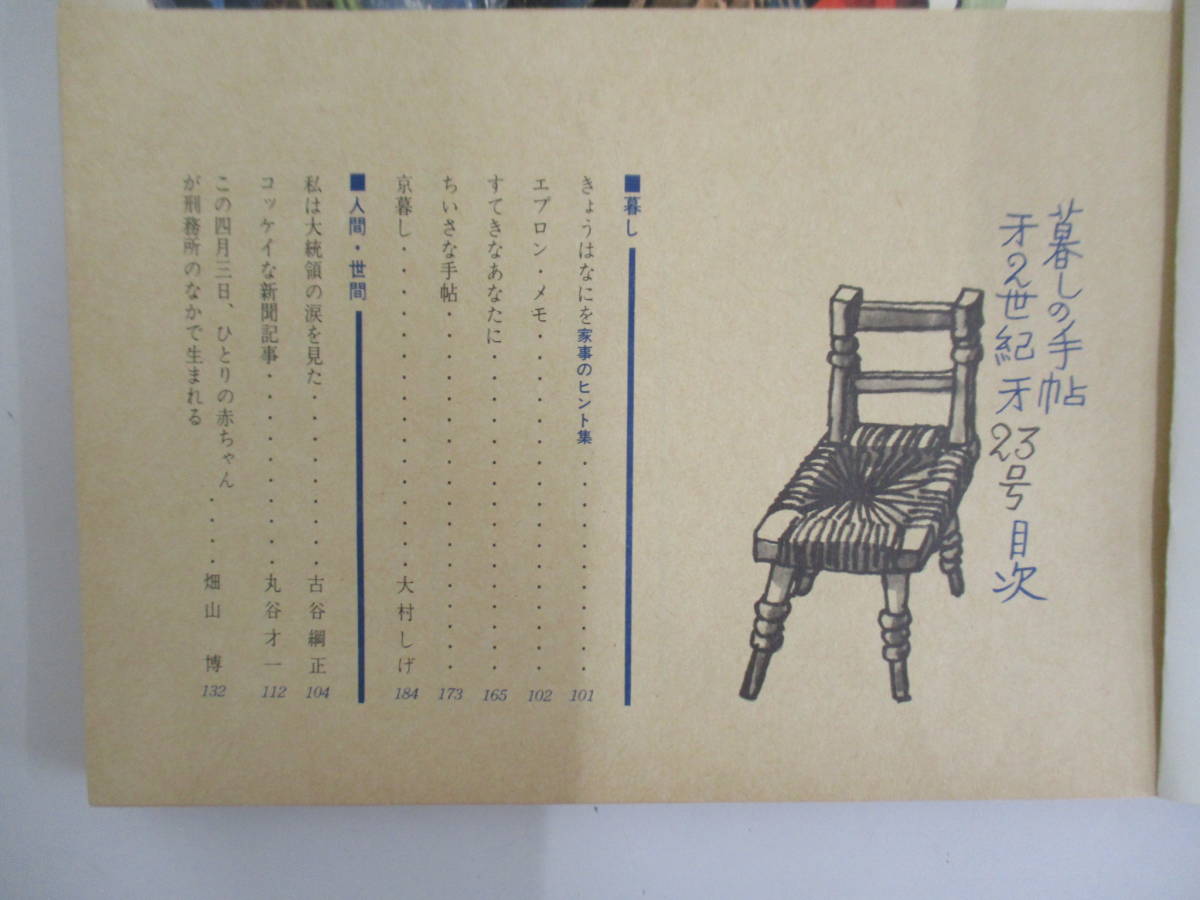 暮しの手帖
才2世紀 才23号 目次
■暮し
きょうはなにを 家事のヒント集・・・・・・・・・・101
エプロン・メモ・・・・・・・・・・・・・・・102
すてきなあなたに・・・・・・・・・・・・・・・165
ちいさな手帖・・・・・・・・・・・・・・・・・173
京暮し・・・・・・・・・・・・・・・大村しげ 184
■人間・世間
私は大統領の涙を見た・・・・・・・・古谷綱正 104
コッケイな新聞記事・・・・・・・・・・丸谷才一 112
この四月三日、ひとりの赤ちゃん
が刑務所のなかで生まれる・・・・畑山 博 132